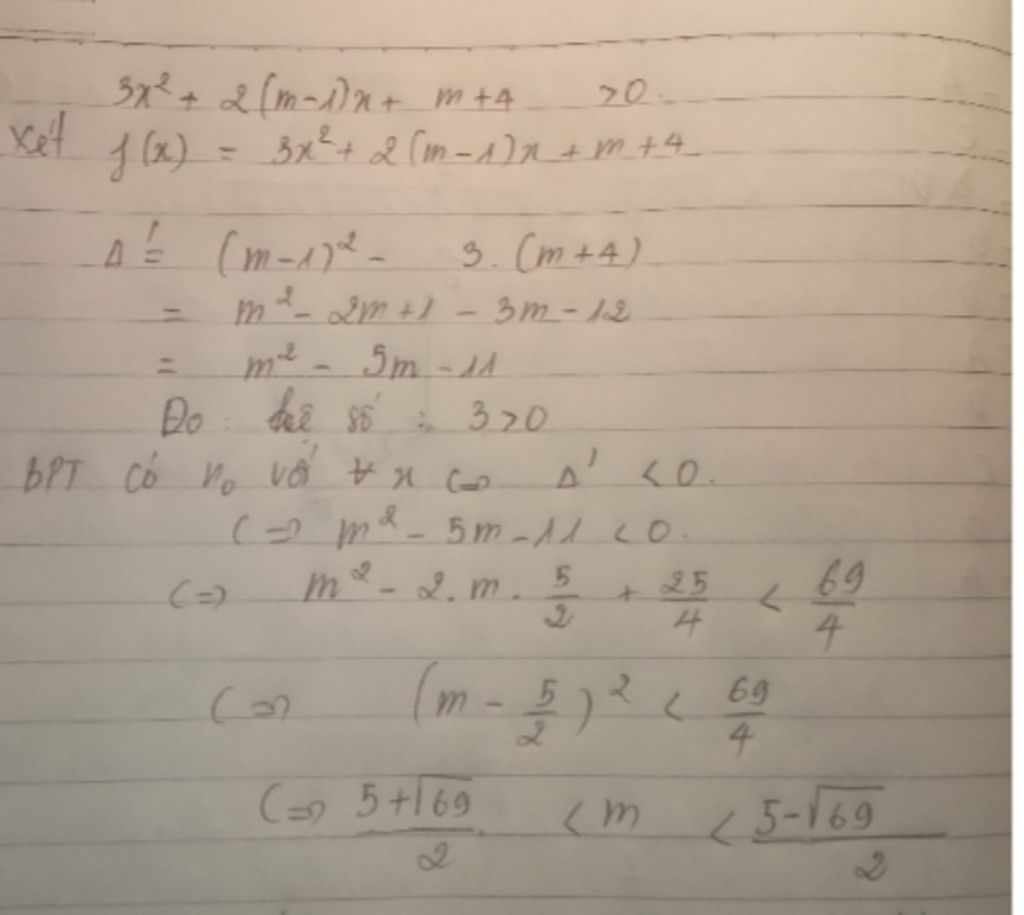 3x² + 2(m-1)x + m+4 >0
Xét f(x) = 3x² + 2(m-1)x + m+4
Δ' = (m-1)² - 3.(m+4)
= m² - 2m+1 - 3m - 12
= m² - 5m - 11
Do hệ số : 3>0
BPT có n₀ với ∀ x <=> Δ' <0.
<=> m² - 5m - 11 <0.
<=> m² - 2.m. 5/2 + 25/4 < 69/4
<=> (m - 5/2)² < 69/4
<=> (5+√69)/2 < m < (5-√69)/2